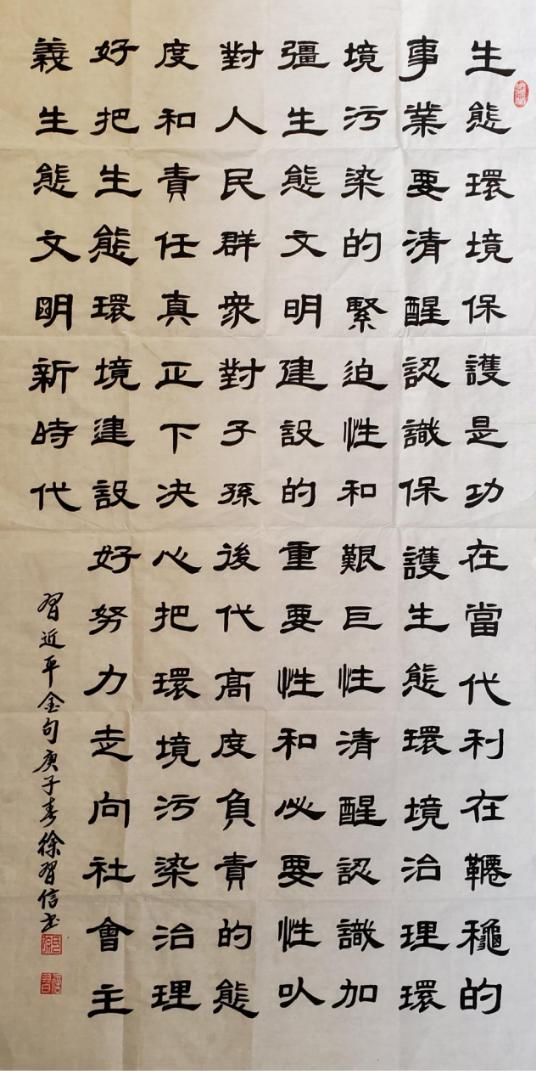 生態環境保護是功在當代利在韆穐的
事業要清醒認識保護生態環境治理環
境污染的緊迫性和艱巨性清醒認識加
彊生態文明建設的重要性和必要性以
對人民群衆對子孫後代高度負責的態
度和責任真正下决心把環境污染治理
好把生態環境建設好努力走向社會主
義生態文明新時代
習近平金句庚子春徐習信書